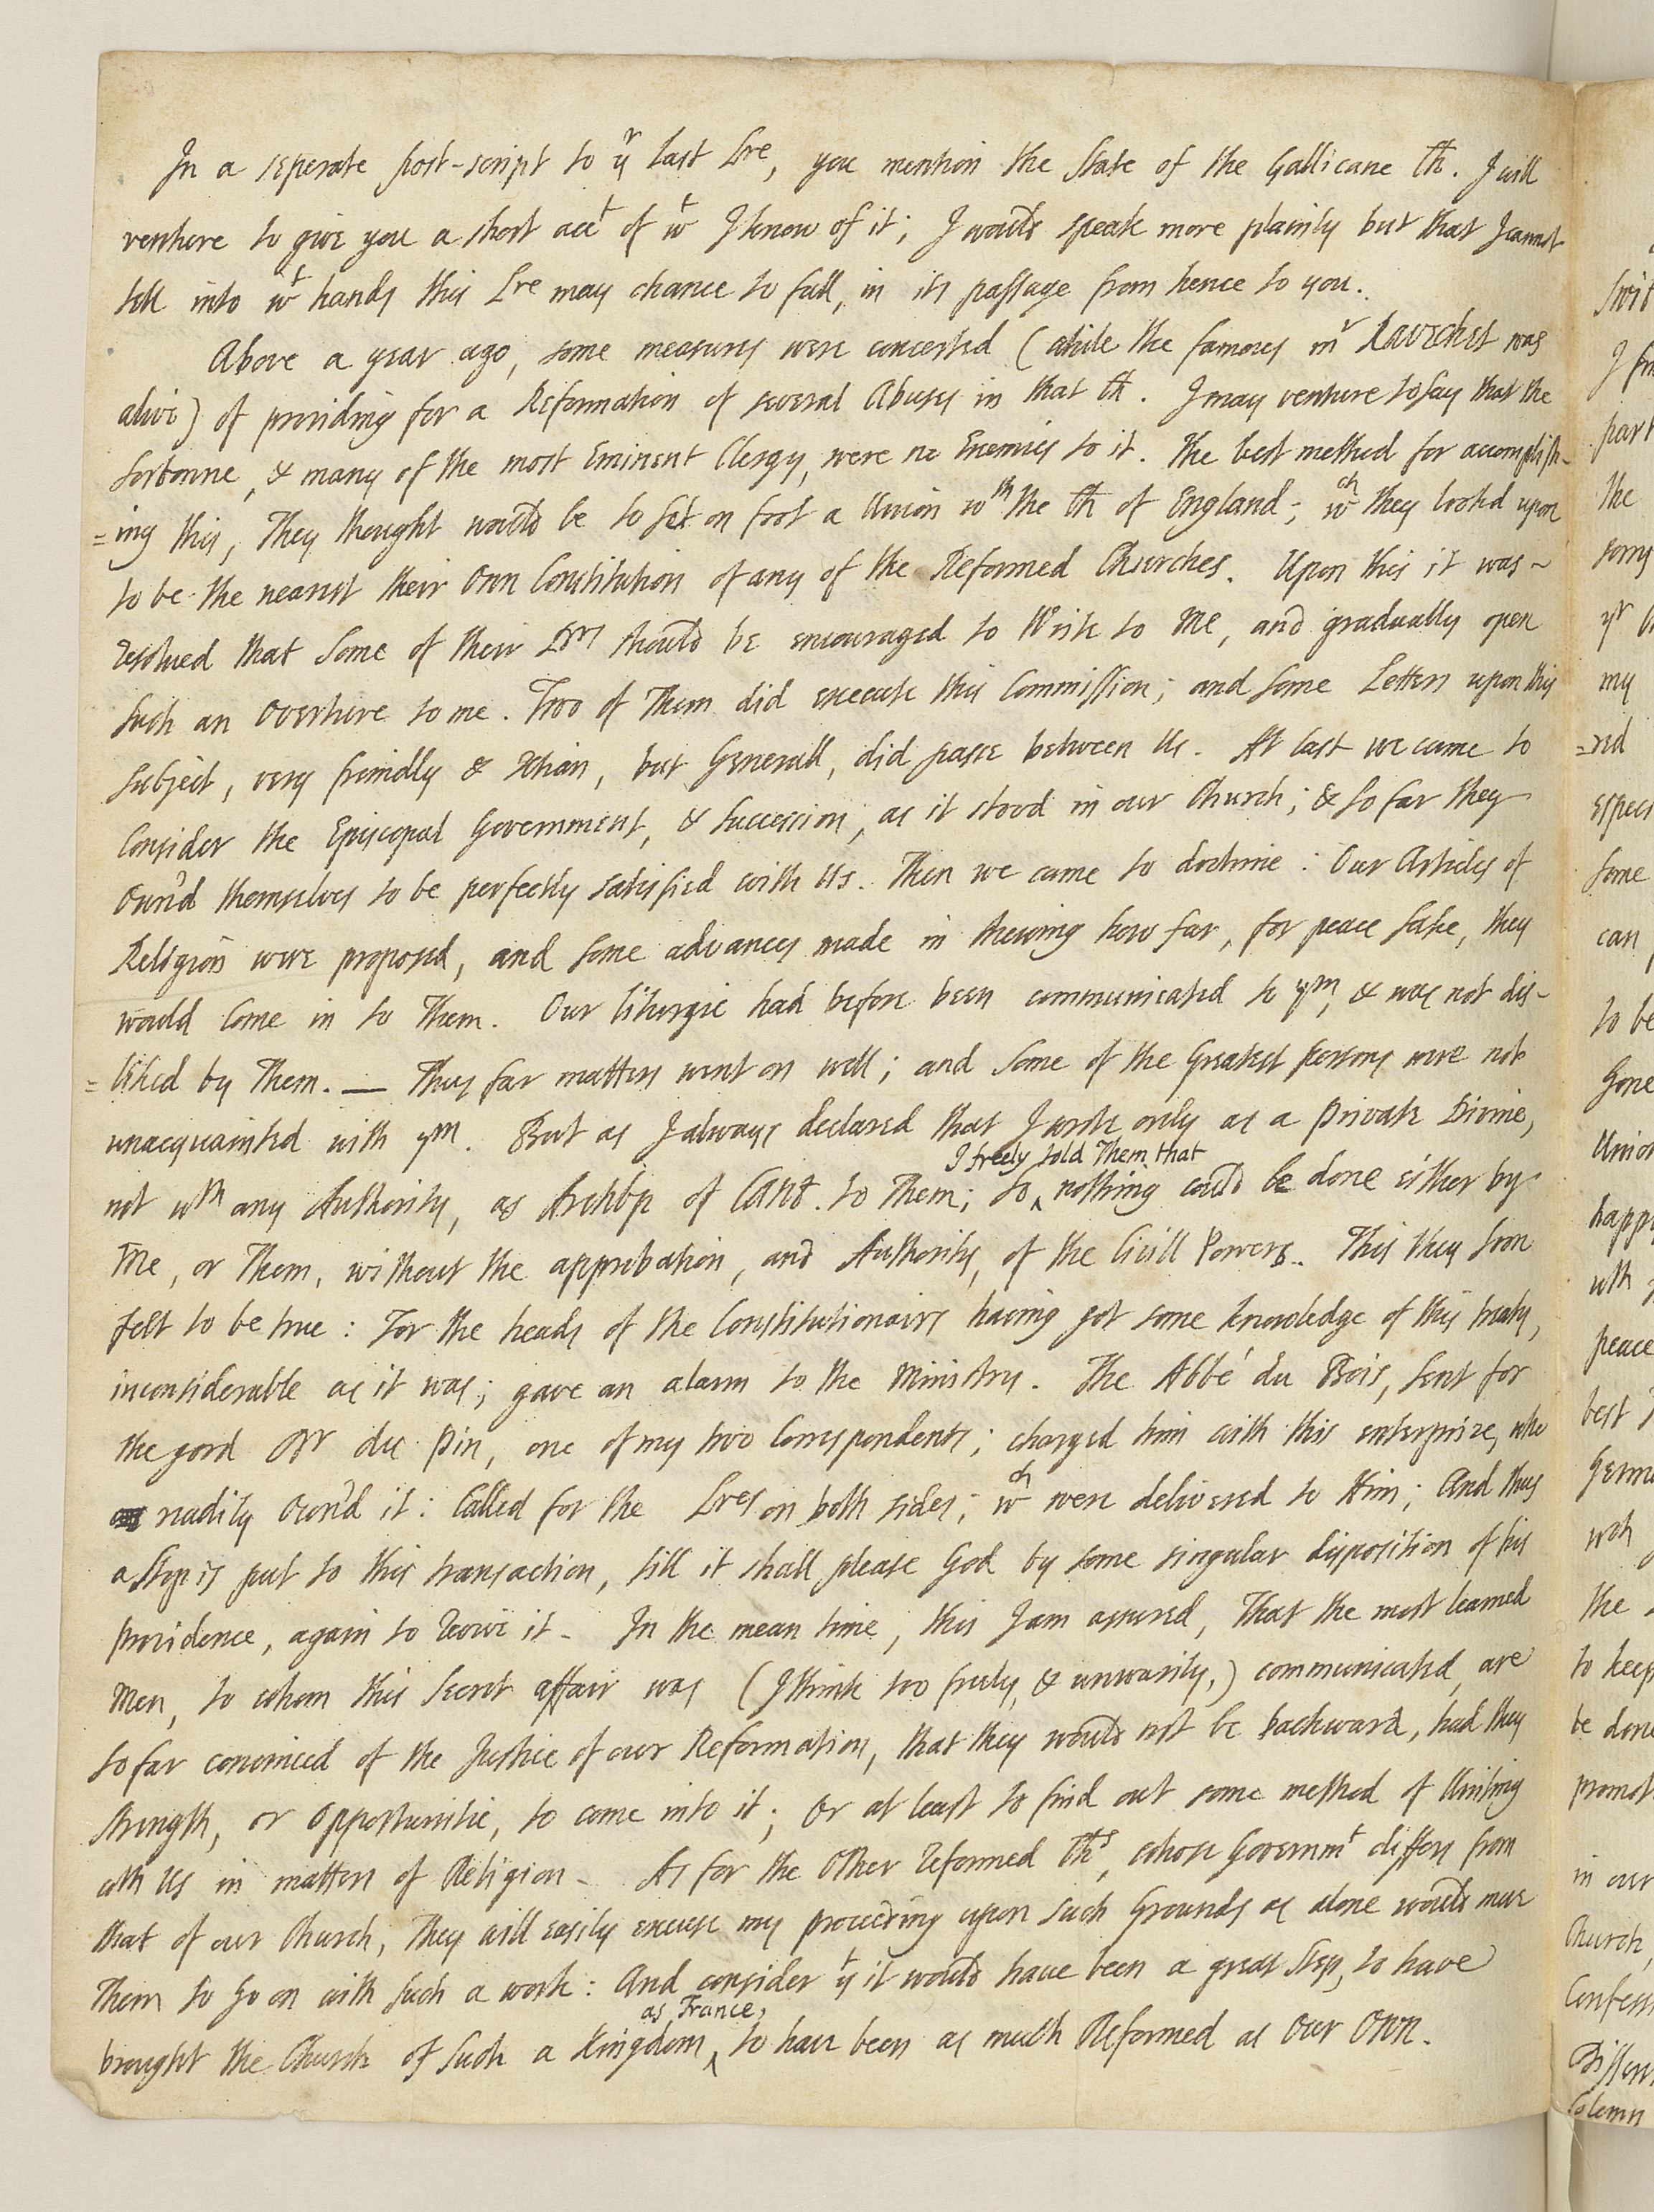 In a seperate post-script to yr last Lre, you mention the State of the Gallicane Ch. I will
venture to give you a short acct of wt I know of it; I would speak more plainly but that I cannot
tell into wt hands this Lre may chance to fall, in its passage from hence to you.
Above a year ago, some measures were concerted (while the famous mr Ravechet was
alive) of providing for a Reformation of several Abuses in that Ch. I may venture to say that the
Sorbonne, & many of the most Eminent Clergy, were no Enemies to it. The best method for accomplish-
=ing this, They thought would be to set on foot a Union wth the Ch of England; wch they looked upon
to be the nearest their own Constitution of any of the Reformed Churches. Upon this it was ~
resolved that some of their Drs should be encouraged to Write to Me, and gradually open
such an Overture to me. Two of Them did execute this Commission; and some Letters upon this
subject, very friendly & Xtian, but Generall, did passe between Us. At last we came to
Consider the Episcopal Government, & Succession, as it stood in our Church; & so far they
Own'd themselves to be perfectly satisfied with Us. Then we came to doctrine: Our Articles of
Religion were proposed, and some advances made in shewing how far, for peace sake, they
would Come in to Them. Our liturgie had before been communicated to ym, & was not dis-
=liked by Them. — Thus far matters went on well; and some of the Greatest persons were not
unacquainted with ym. But as I always declared that I wrote only as a Private Divine,
not wth any Authority, as Archbp of Cant. to Them; so ^ I freely told Them that nothing could be done either by
Me, or Them, without the approbation, and Authority, of the Civill Powers. This they soon
felt to be true: For the heads of the Constitutionairs having got some knowledge of this treaty,
inconsiderable as it was; gave an alarm to the Ministry. The Abbé du Bois, sent for
the good Dr du Pin, one of my two Correspondents; charged him with this enterprize, who
readily Own'd it: Called for the Lres on both sides; wch were delivered to Him; And thus
a Stop is put to this transaction, till it shall please God by some singular disposition of his
providence, again to revive it - In the mean time, this I am assured, That the most learned
Men, to whom this Secret affair was (I think too freely, & unwarily,) communicated, are
so far convinced of the Justice of our Reformation, that they would not be backward, had they
strength, or opportunitie, to come into it; or at least to find out some method of Uniting
wth Us in matters of Religion - As for the Other reformed Chs, whose Governmt differs from
that of our Church, They will easily excuse my proceeding upon such Grounds as alone would move
Them to go on with such a work: And consider yt it would have been a great Step, to have
brought the Church of such a Kingdom ^ as France, to have been as much Reformed as Our Own.